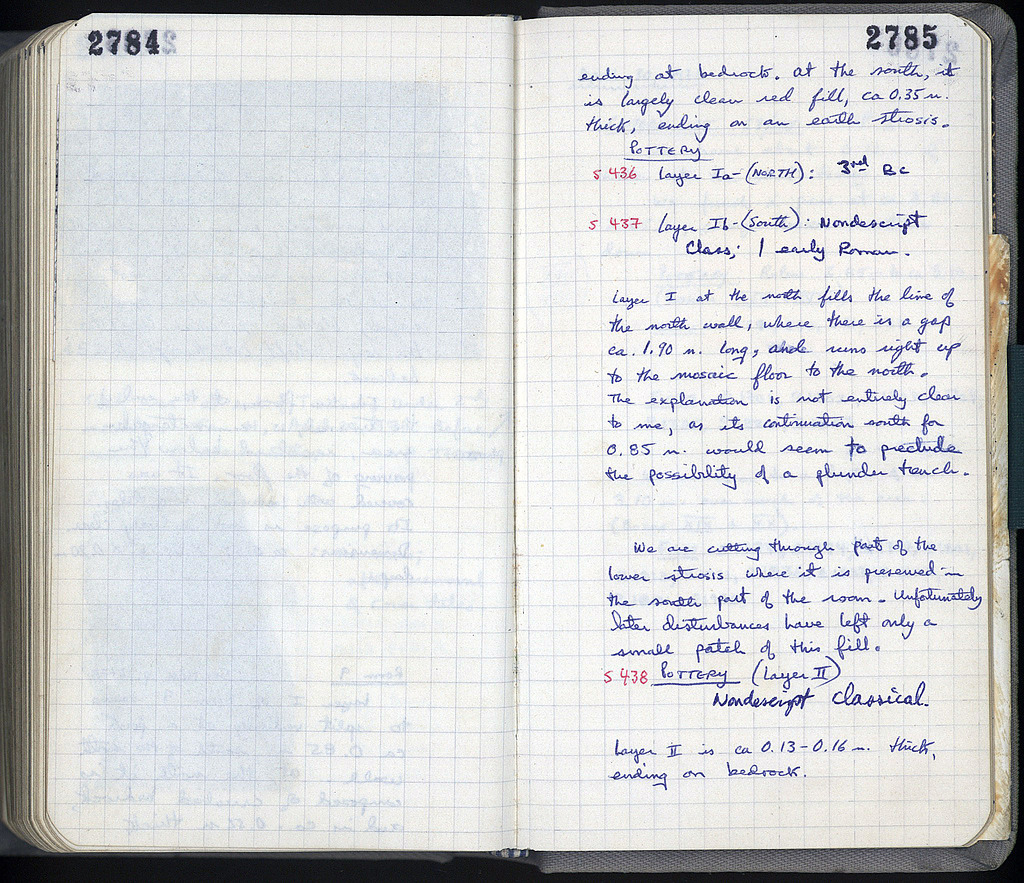 2784
2785
ending at bedrock. At the south, it
is largely clean red fill, ca 0.35 m.
thick, ending on an earth strosis.
POTTERY
S 436 Layer Ia-(NORTH): 3rd BC
S 437 Layer Ib-(South): Nondescript
Class; 1 early Roman.
Layer I at the north fills the line of
the north wall, where there is a gap
ca. 1.90 m. long, and runs right up
to the mosaic floor to the north.
The explanation is not entirely clear
to me, as its continuation south for
0.85 m. would seem to preclude
the possibility of a plunder trench.
We are cutting through part of the
lower strosis where it is preserved in
the south part of the room. Unfortunately
later disturbances have left only a
small patch of this fill.
S 438 POTTERY (Layer II)
Nondescript Classical.
Layer II is ca 0.13-0.16 m. thick,
ending on bedrock.